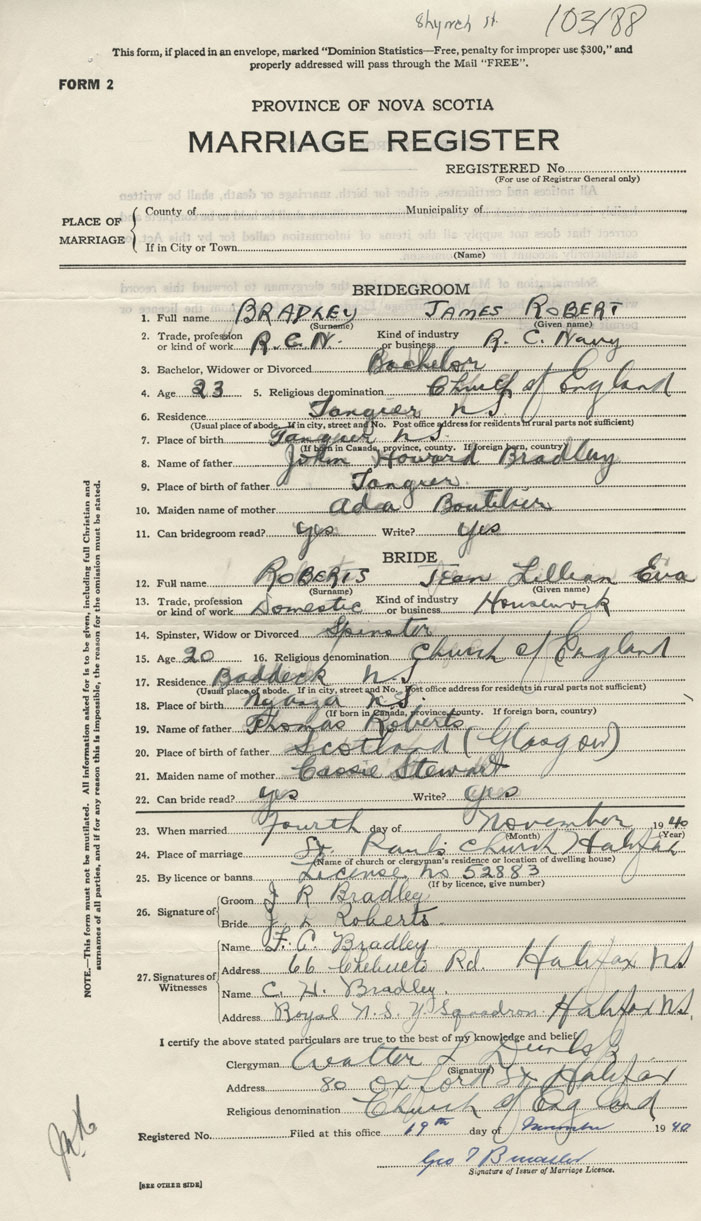 103188
This form, if placed in an envelope, marked "Dominion Statistics—Free, penalty for improper use $300," and
properly addressed will pass through the Mail "FREE".
FORM 2
PROVINCE OF NOVA SCOTIA
MARRIAGE REGISTER
REGISTERED No.
(For use of Registrar General only)
PLACE OF MARRIAGE
County of Municipality of
If in City or Town
(Name)
BRIDEGROOM
1. Full name BRADLEY JAMES ROBERT
(Surname) (Given name)
2. Trade, profession or kind of work R.C.N. Kind of industry or business R. C. Navy
3. Bachelor, Widower or Divorced Bachelor
4. Age 23 5. Religious denomination Church of England
6. Residence Tangier N S
(Usual place of abode. If in city, street and No. Post office address for residents in rural parts not sufficient)
7. Place of birth Tangier N S.
(If born in Canada, province, county. If foreign born, country)
8. Name of father John Howard Bradley
9. Place of birth of father Tangier
10. Maiden name of mother Ada Boutilier
11. Can bridegroom read? yes Write? yes
BRIDE
12. Full name ROBERTS Jean Lillian Eva
(Surname) (Given name)
13. Trade, profession or kind of work Domestic Kind of industry or business Housework
14. Spinster, Widow or Divorced Spinster
15. Age 20 16. Religious denomination Church of England
17. Residence Baddeck N S
(Usual place of abode. If in city, street and No. Post office address for residents in rural parts not sufficient)
18. Place of birth Nyanza N S.
(If born in Canada, province, county. If foreign born, country)
19. Name of father Thomas Roberts
20. Place of birth of father Scotland (Glasgow)
21. Maiden name of mother Cassie Stewart
22. Can bride read? yes Write? yes
23. When married fourth day of November 1940
(Month) (Year)
24. Place of marriage St. Paul's Church Halifax
(Name of church or clergyman's residence or location of dwelling house)
25. By licence or banns License No 52883
(If by licence, give number)
26. Signature of
Groom J R Bradley
Bride J. L Roberts.
27. Signatures of Witnesses
Name F. C. Bradley
Address 66 Chebucto Rd. Halifax NS
Name C. H. Bradley.
Address Royal N. S. Y. Squadron. Halifax NS.
I certify the above stated particulars are true to the best of my knowledge and belief.
Clergyman Walter L Dunlop
(Signature)
Address 80 Oxford St Halifax
Religious denomination Church of England
Registered No. Filed at this office 19th day of November 1940
Geo T
Signature of Issuer of Marriage Licence.
[SEE OTHER SIDE]
NOTE.—This form must not be mutilated. All information asked for is to be given, including full Christian and
surnames of all parties, and if for any reason this is impossible, the reason for the omission must be stated.